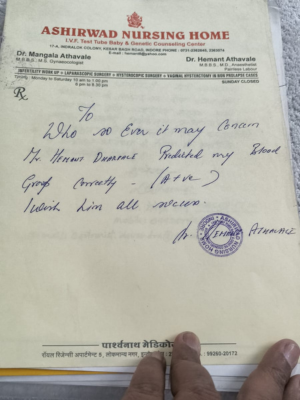 ASHIRWAD NURSING HOME
I.V.F. Test Tube Baby & Genetic Counseling Center
Dr. Mangala Athavale
M.B.B.S., M.S. Gynaecologist
Dr. Hemant Athavale
M.B.B.S., M.D. Anaesthetist
Painless Labour
INFERTILITY WORK UP • LAPAROSCOPIC SURGERY • HYSTEROSCOPIC SURGERY • VAGINAL HYSTERECTOMY IN NON PROLAPSE CASES
Timing : Monday to Saturday 10 am to 1.00 pm
SUNDAY CLOSED
Rx
To
Who so Ever it may Concern
Mr. Hemant Predicted my Blood
Group correctly - (A+ve)
I wish him all success.
Dr. Hemant ATHAVALE
ASHIRWAD NURSING HOME
पार्श्वनाथ मेडिको